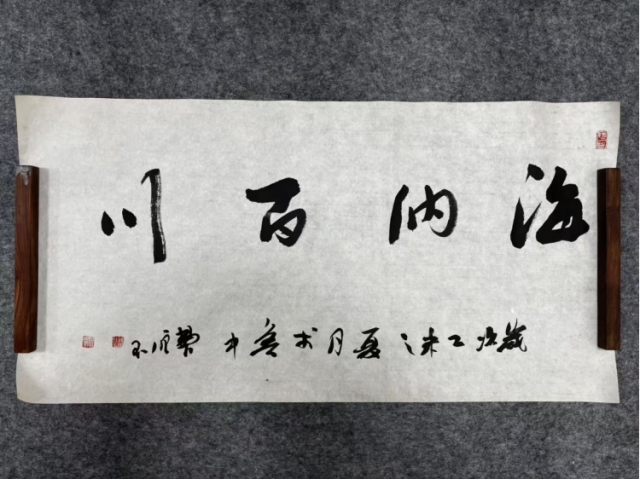 海纳百川
岁次乙未之夏月于